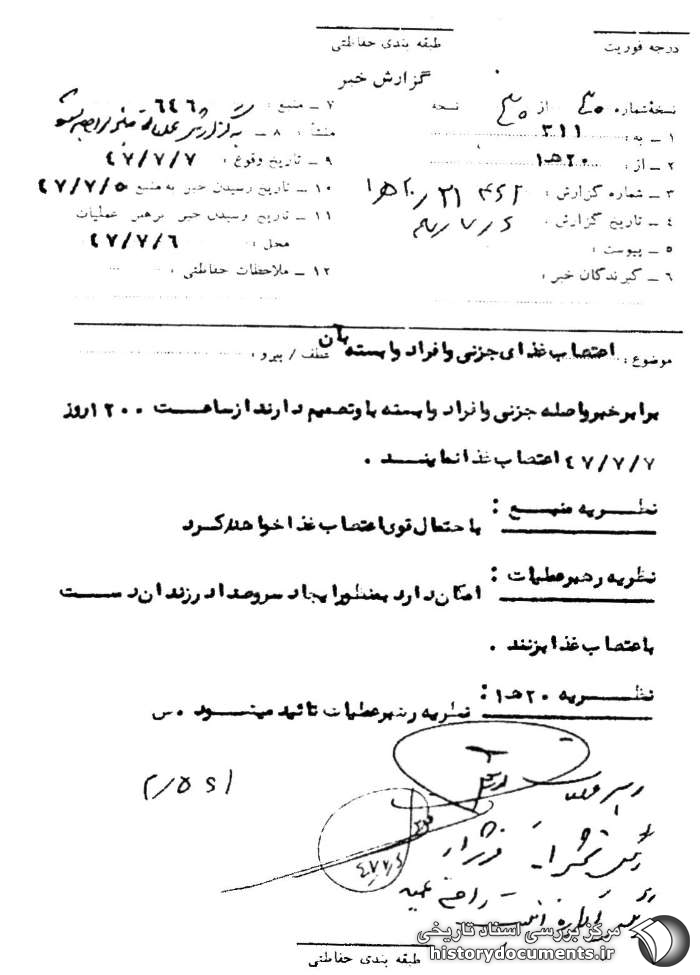 طبقه بندی حفاظتی
درجه فوریت
گزارش خبر
نسخه شماره ۳۰ از ۳۰ نسخه
۱ ـ به : ۳۱۱
۲ ـ از : ۲۰هـ۱
۳ ـ شماره گزارش :
۴ ـ تاریخ گزارش :
۵ ـ پیوست :
۶ ـ گیرندگان خبر :
۷ ـ منبع : ۶۴۶
۸ ـ منشأ :
۹ ـ تاریخ وقوع : ۴۷/۷/۷
۱۰ ـ تاریخ رسیدن خبر به منبع ۴۷/۷/۵
۱۱ ـ تاریخ رسیدن خبر برهبر عملیات
محل : ۴۷/۷/۶
۱۲ ـ ملاحظات حفاظتی :
موضوع : اعتصاب غذای جزنی وافراد وابسته بان
عطف / پیرو :
برابر خبرواصله جزنی وافراد وابسته باوتصمیم دارند ازساعت ۱۲۰۰روز
۴۷/۷/۷ اعتصاب غذا نمایند .
نظریه منبع : باحتمال قوی اعتصاب غذا خواهند کرد
نظریه رهبرعملیات : امکان دارد بمنظور ایجاد سروصدا در زندان دست
باعتصاب غذا بزنند .
نظریه ۲۰هـ۱ : نظریه رهبرعملیات تائید میشود . س
رهبر عملیات
طبقه بندی حفاظتی
مرکز بررسی اسناد تاریخی
historydocuments.ir